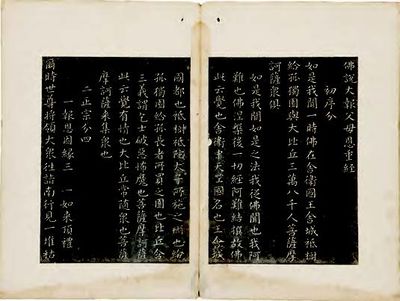 佛說大報父母恩重經
初序分
如是我聞一時佛在舍衛國王舍城祇樹
給孤獨園與大比丘三萬八千人菩薩摩
訶薩衆俱
如是我聞如是之法我從佛聞也我阿
難也佛涅槃後一切經阿難結撰故佛
此云覺也舍衛中天竺國名也王舍城
國都也祇樹祇陁太子所施之樹也給
孤獨園給孤長者所買之園也比丘含
三義謂乞士破惡怖魔也菩薩摩訶薩
此云覺有情也大比丘常隨衆也菩薩
摩訶薩來集衆也
二正宗分四
一報恩因緣三 一如來頂禮
爾時世尊將領大衆往詣南行見一堆枯